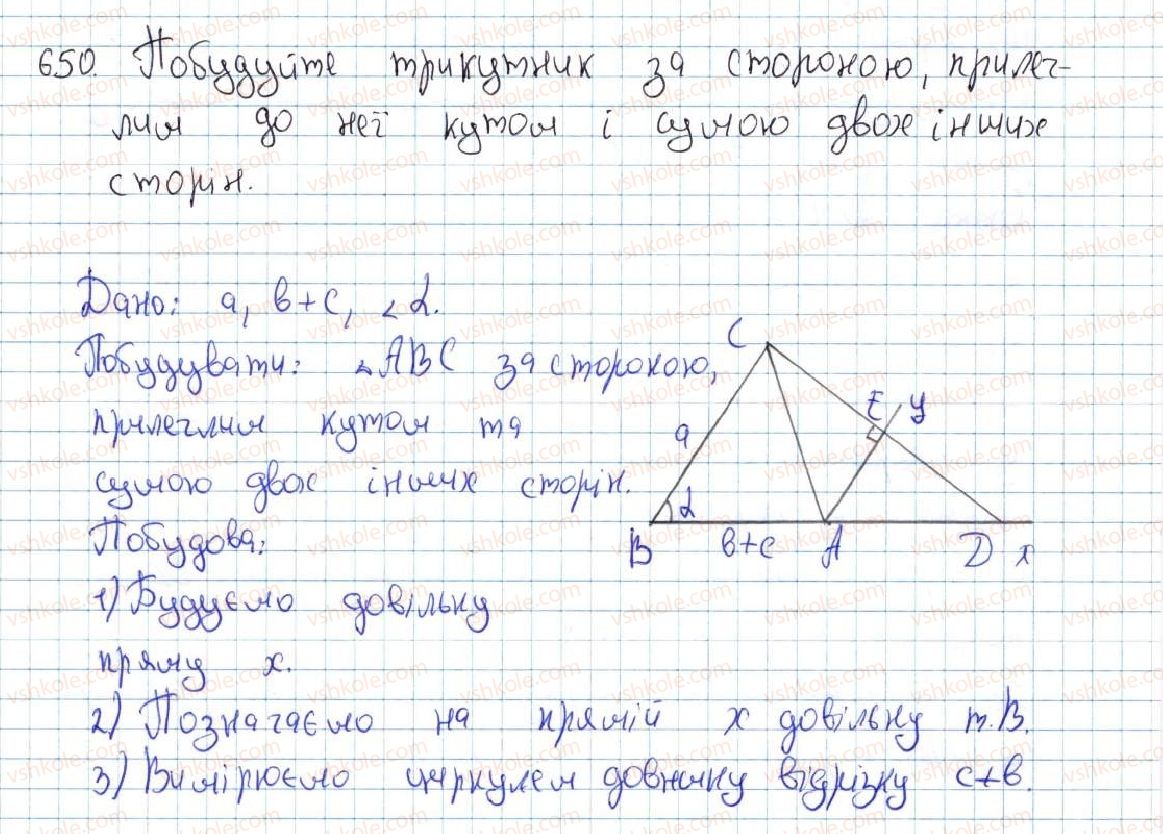 650. Побудуйте трикутник за стороною, прилег-
лим до неї кутом і сумою двох інших
сторін.
Дано: а, в+с, ∠α.
Побудувати: △АВС за стороною,
прилеглим кутом та
сумою двох інших сторін.
Побудова:
1) Будуємо довільну
пряму х.
2) Позначаємо на прямій х довільну т.В.
3) Вимірюємо циркулем довжину відрізку с+в.
C
E y
a
α
B в+с A D x
vshkole.com